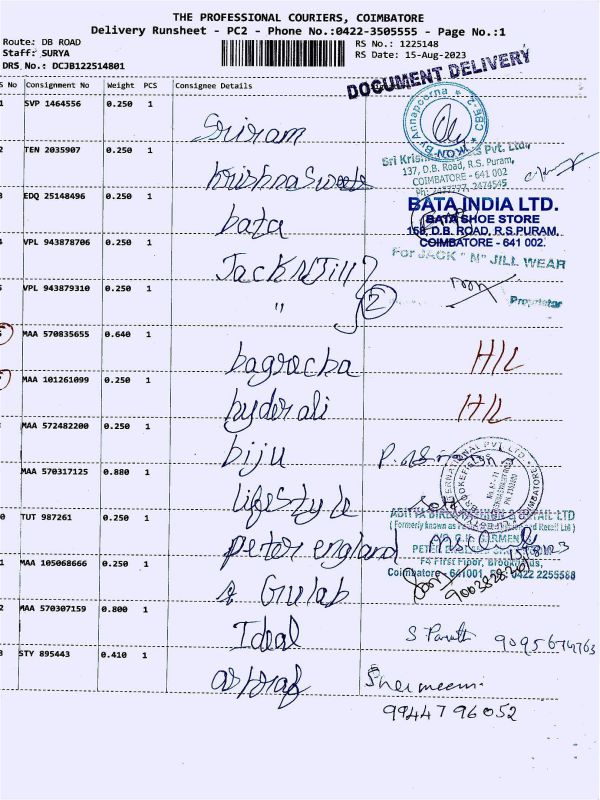 THE PROFESSIONAL COURIERS, COIMBATORE
Delivery Runsheet - PC2 - Phone No.:0422-3505555 - Page No.:1
Route: DB ROAD
RS No.: 1225148
Staff: SURYA
RS Date: 15-Aug-2023
DRS No.: DCJB122514801
DOCUMENT DELIVERY
S No Consignment No Weight PCS Consignee Details
1 SVP 1464556 0.250 1
Sriram
2 TEN 2035907 0.250 1
Krishna Sweets
Pvt. Ltd.,
137, D.B. Road, R.S. Puram,
COIMBATORE - 641 002
3 EDQ 25148496 0.250 1
bata
BATA INDIA LTD.
BATA SHOE STORE
158, D.B. ROAD, R.S.PURAM,
COIMBATORE - 641 002.
VPL 943878706 0.250 1
Jack N Jill
For JACK " N" JILL WEAR
VPL 943879310 0.250 1
"
2
Proprietor
MAA 570835655 0.640 1
bagrecha
H/L
MAA 101261099 0.250 1
hyder ali
H/L
MAA 572482200 0.250 1
biju
MAA 570317125 0.880 1
lifestyle
0 TUT 987261 0.250 1
peter england
( Formerly known as
F4 First Floor,
Coimbatore - 641001,
0422 2255568
1 MAA 105068666 0.250 1
Gulab
2 MAA 570307159 0.800 1
Ideal
3 STY 895443 0.410 1
ashraf
9944796052